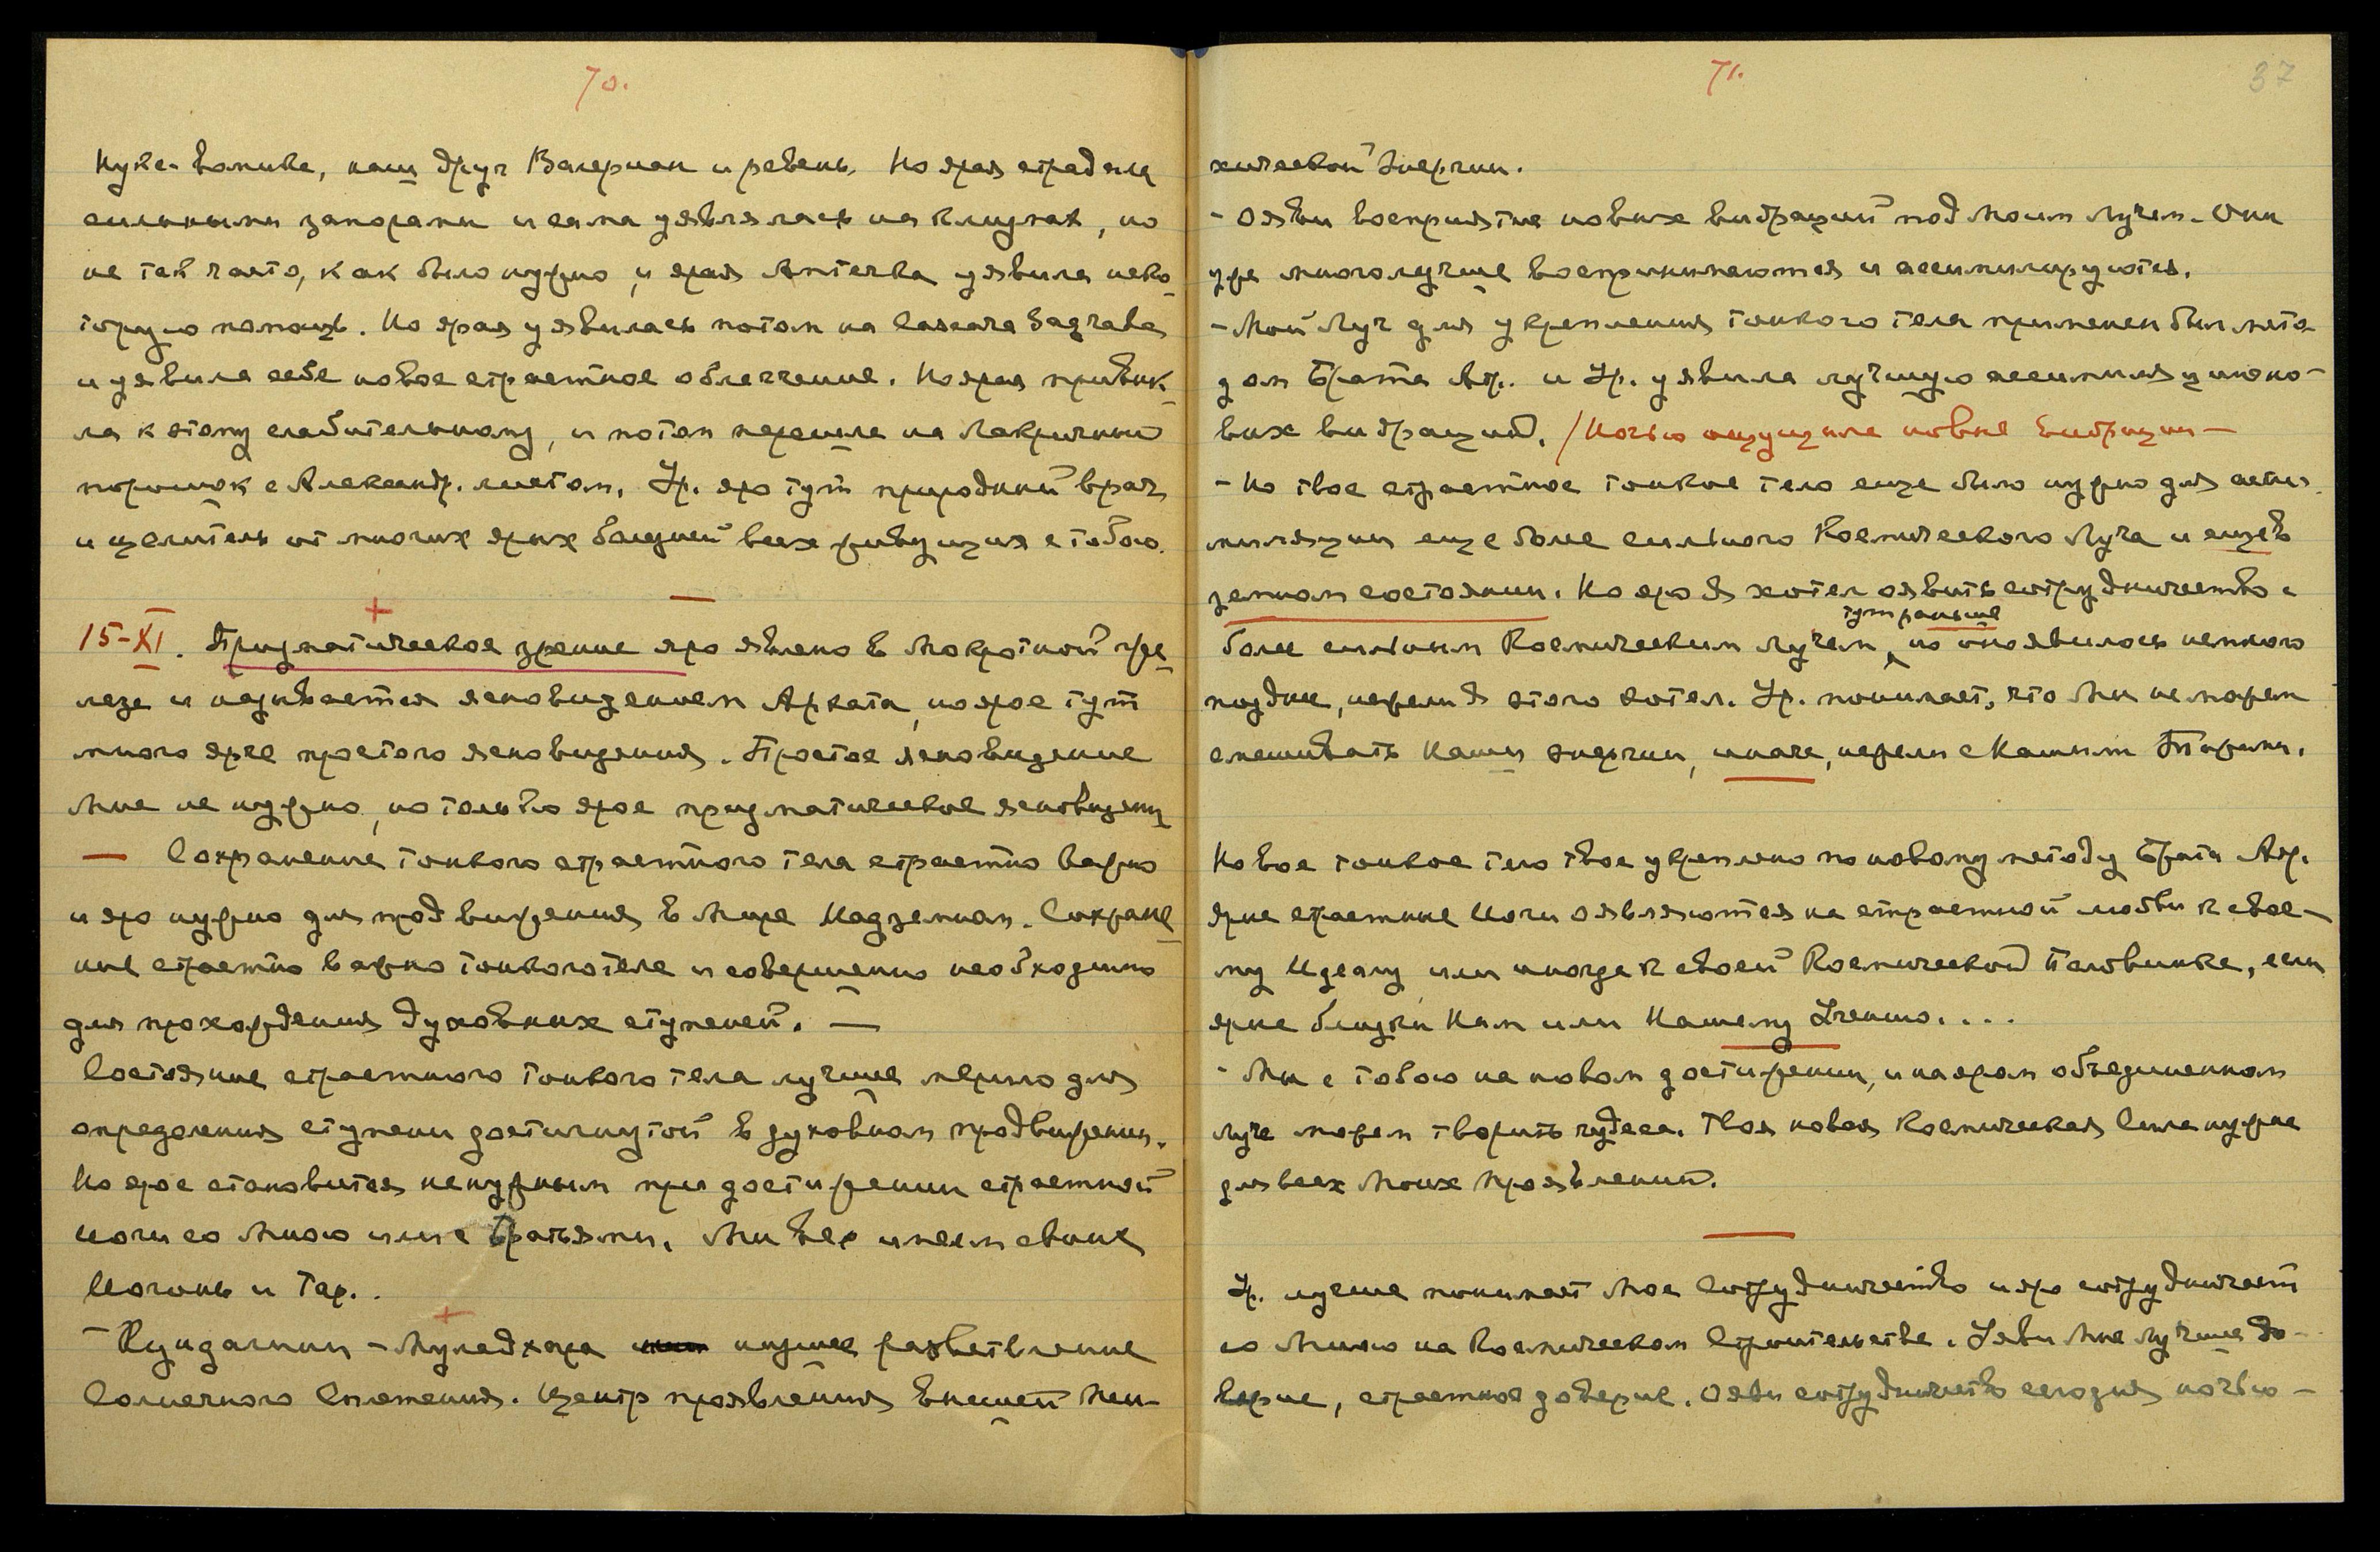 70.
Нукс-вомика, наш друг Валериан и ревень. Но ярая страдала
сильными запорами и сама уявлялась на клизмах, но
не так часто, как было нужно, и ярая Аптечка уявила неко-
торую помощь. Но ярая уявилась потом на Cascara Sagrada
и уявила себе новое страстное облегчение. Но ярая привык-
ла к этому слабительному, и потом перешла на Лакричный
порошок с Александр. листом. Ур. яро тут природный врач
и целитель от многих ярых болезней всех живущих с тобою.
15-XI. Призматическое зрение яро явлено в Мокротной же-
лезе и называется ясновидением Архата, но ярое тут
много ярче простого ясновидения. Простое ясновидение
Мне не нужно, но только ярое призматическое ясновидение
— Сохранение тонкого страстного тела страстно важно
и яро нужно для продвижения в Мире Надземном. Сохране-
ние страстно важно тонкого тела и совершенно необходимо
для прохождения духовных ступеней. —
Состояние страстного тонкого тела лучшее мерило для
определения ступени достигнутой в духовном продвижении.
Но ярое становится ненужным при достижении страстной
йоги со Мною или с Братьями. Мы все имеем своих
Йогинь и Тар..
- Кундалини - Муладхара низшее разветвление
Солнечного Сплетения. Центр проявления внешней пси-
71.
37
хической Энергии.
- Ояви восприятие новых вибраций под Моим Лучем. Они
уже много лучше воспринимаются и ассимилируются.
- Мой Луч для укрепления тонкого тела применен был мето-
дом Брата Яр. и Ур. уявила лучшую ассимиляцию но-
вых вибраций. /Ночью ощущала новые вибрации —
- Но твое страстное тонкое тело еще было нужно для асси-
миляции еще более сильного Космического Луча и еще в
земном состоянии. Но яро Я хотел оявить сотрудничество с
тут раньше
более сильным Космическим Лучем, но оно явилось немного
позднее, нежели Я этого хотел. Ур. понимает, что Мы не можем
смешивать Наши энергии, иначе, нежели с Нашими Тарами.
Новое тонкое тело твое укреплено по новому методу Брата Яр.
Ярые страстные Йоги оявляются на страстной любви к свое-
му Идеалу или иногда к своей Космической Половинке, если
ярые близки Нам или Нашему Учению....
- Мы с тобою на новом достижении, и на яром объединенном
Луче можем творить чудеса. Твоя новая Космическая Сила нужна
для всех Моих проявлений.
Ур. лучше понимает Мое Сотрудничество и яро сотрудничает
со Мною на Космическом Строительстве. Уяви Мне лучшее до-
верие, страстное доверие. Ояви сотрудничество сегодня ночью —